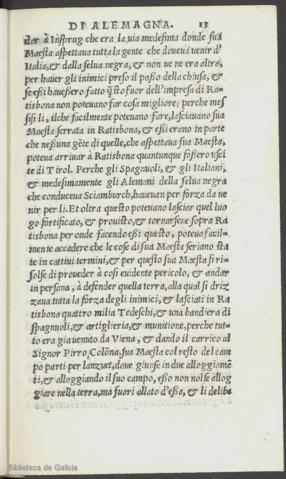 DI ALEMAGNA. 13
dar à Insprug che era la uia medesima donde sua
Maestà aspettaua tutta la gente che doueua uenir d'
Italia, & dalla selua negra, & non ue ne era altra,
per hauer gli inimici preso il passo della chiusa, &
se essi hauessero fatto q̃sto fuor dell'impresa di Ra-
tisbona non poteuano far cosa migliore; perche mes
sisi li, ilche facilmente poteuano fare, lasciauano sua
Maestà serrata in Ratisbona, & essi erano in parte
che nessuna gẽte di quelle, che aspettaua sua Maestà,
poteua arriuar à Ratisbona quantunque fossero usci
te di Tirol. Perche gli Spagnuoli, & gli Italiani,
& medesimamente gli Alemani della selua negra
che conduceua Sciamburch, haueuan per forza da ue
nir per li. Et oltra questo poteuano lasciar quel luo
go fortificato, & prouisto, & tornarsene sopra Ra
tisbona per onde facendo essi questo, poteua facil-
mente accadere che le cose di sua Maestà seriano sta
te in cattiui termini, & per questo sua Maestà si ri-
solse di proueder à cosi euidente pericolo, & andar
in persona, à defender quella terra, alla qual si driz
zaua tutta la forza degli inimici, & lasciati in Ra
tisbona quattro milia Tedeschi, & una bandiera di
spagnuoli, & artiglieria, & munitione, perche tut-
to era gia uenuto da Viena, & dando il carrico al
Signor Pirro Colõna, sua Maestà col resto del cam
po parti per lanzuet, doue giunse in due alloggiamẽ
ti, & alloggiando il suo campo, esso non uolse allog
giare nella terra, ma fuori allato d'essa, & li delibe
Biblioteca de Galicia